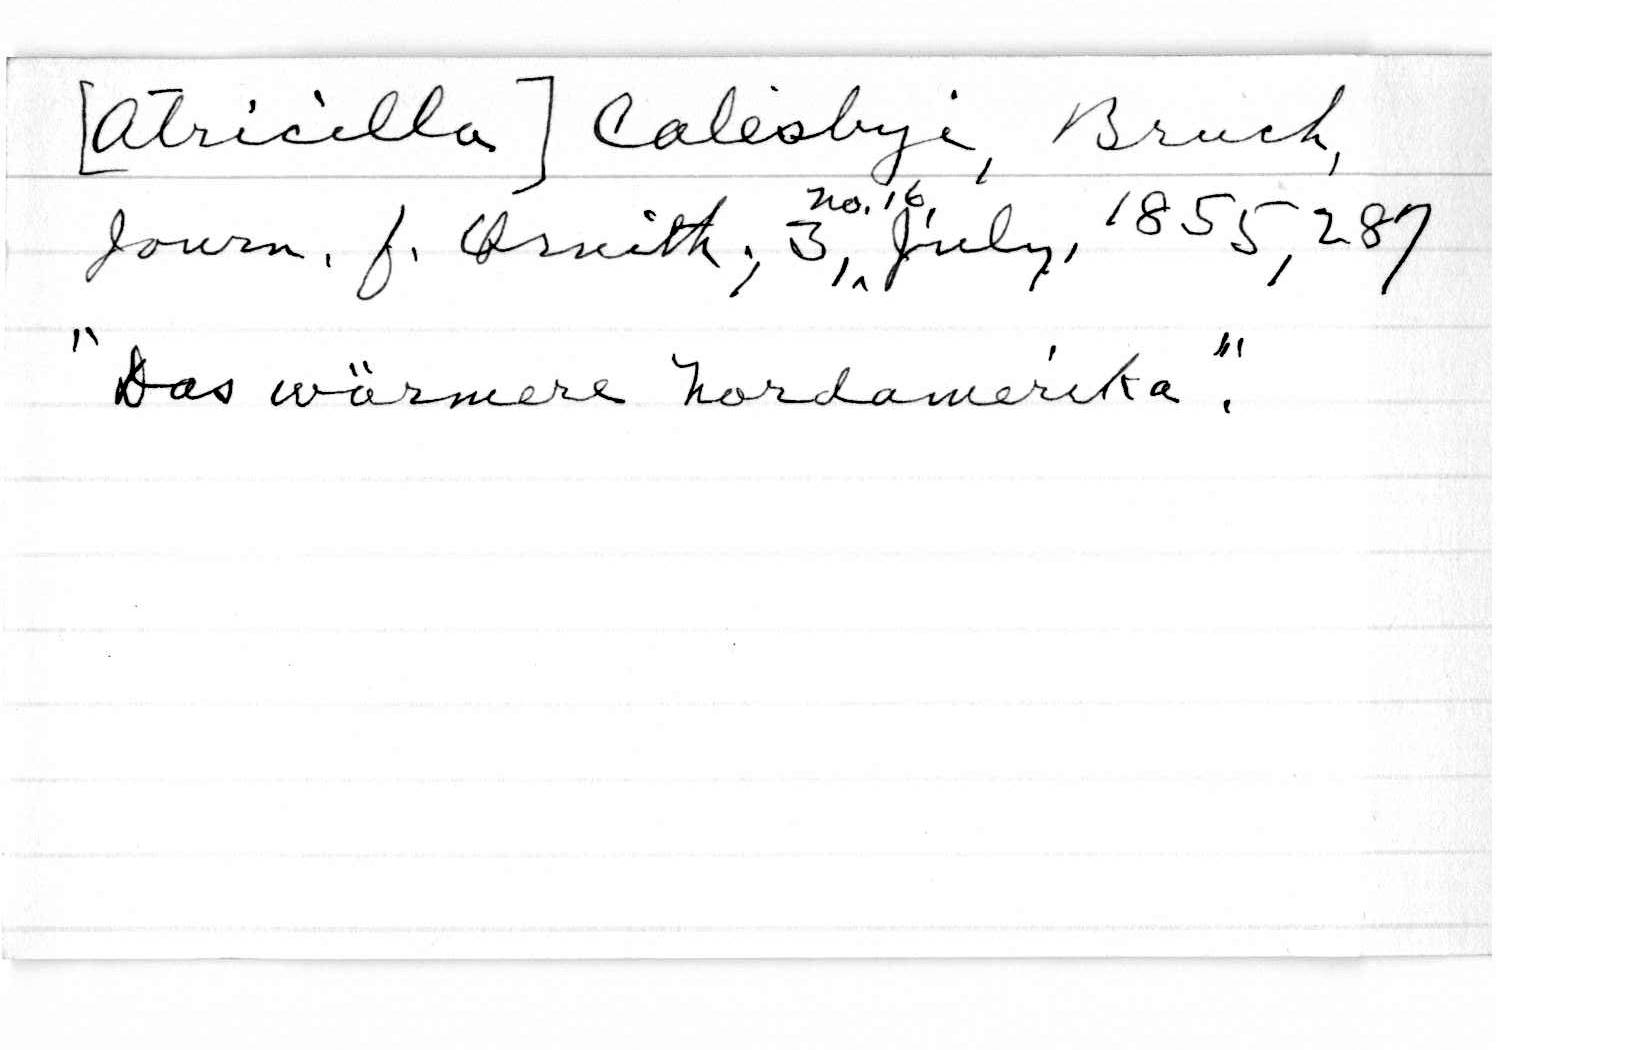 [Atricilla] Catesbyi, Bruch,
Journ. f. Ornith., 3, no. 16, July, 1855, 287
"Das wärmere Nordamerika".